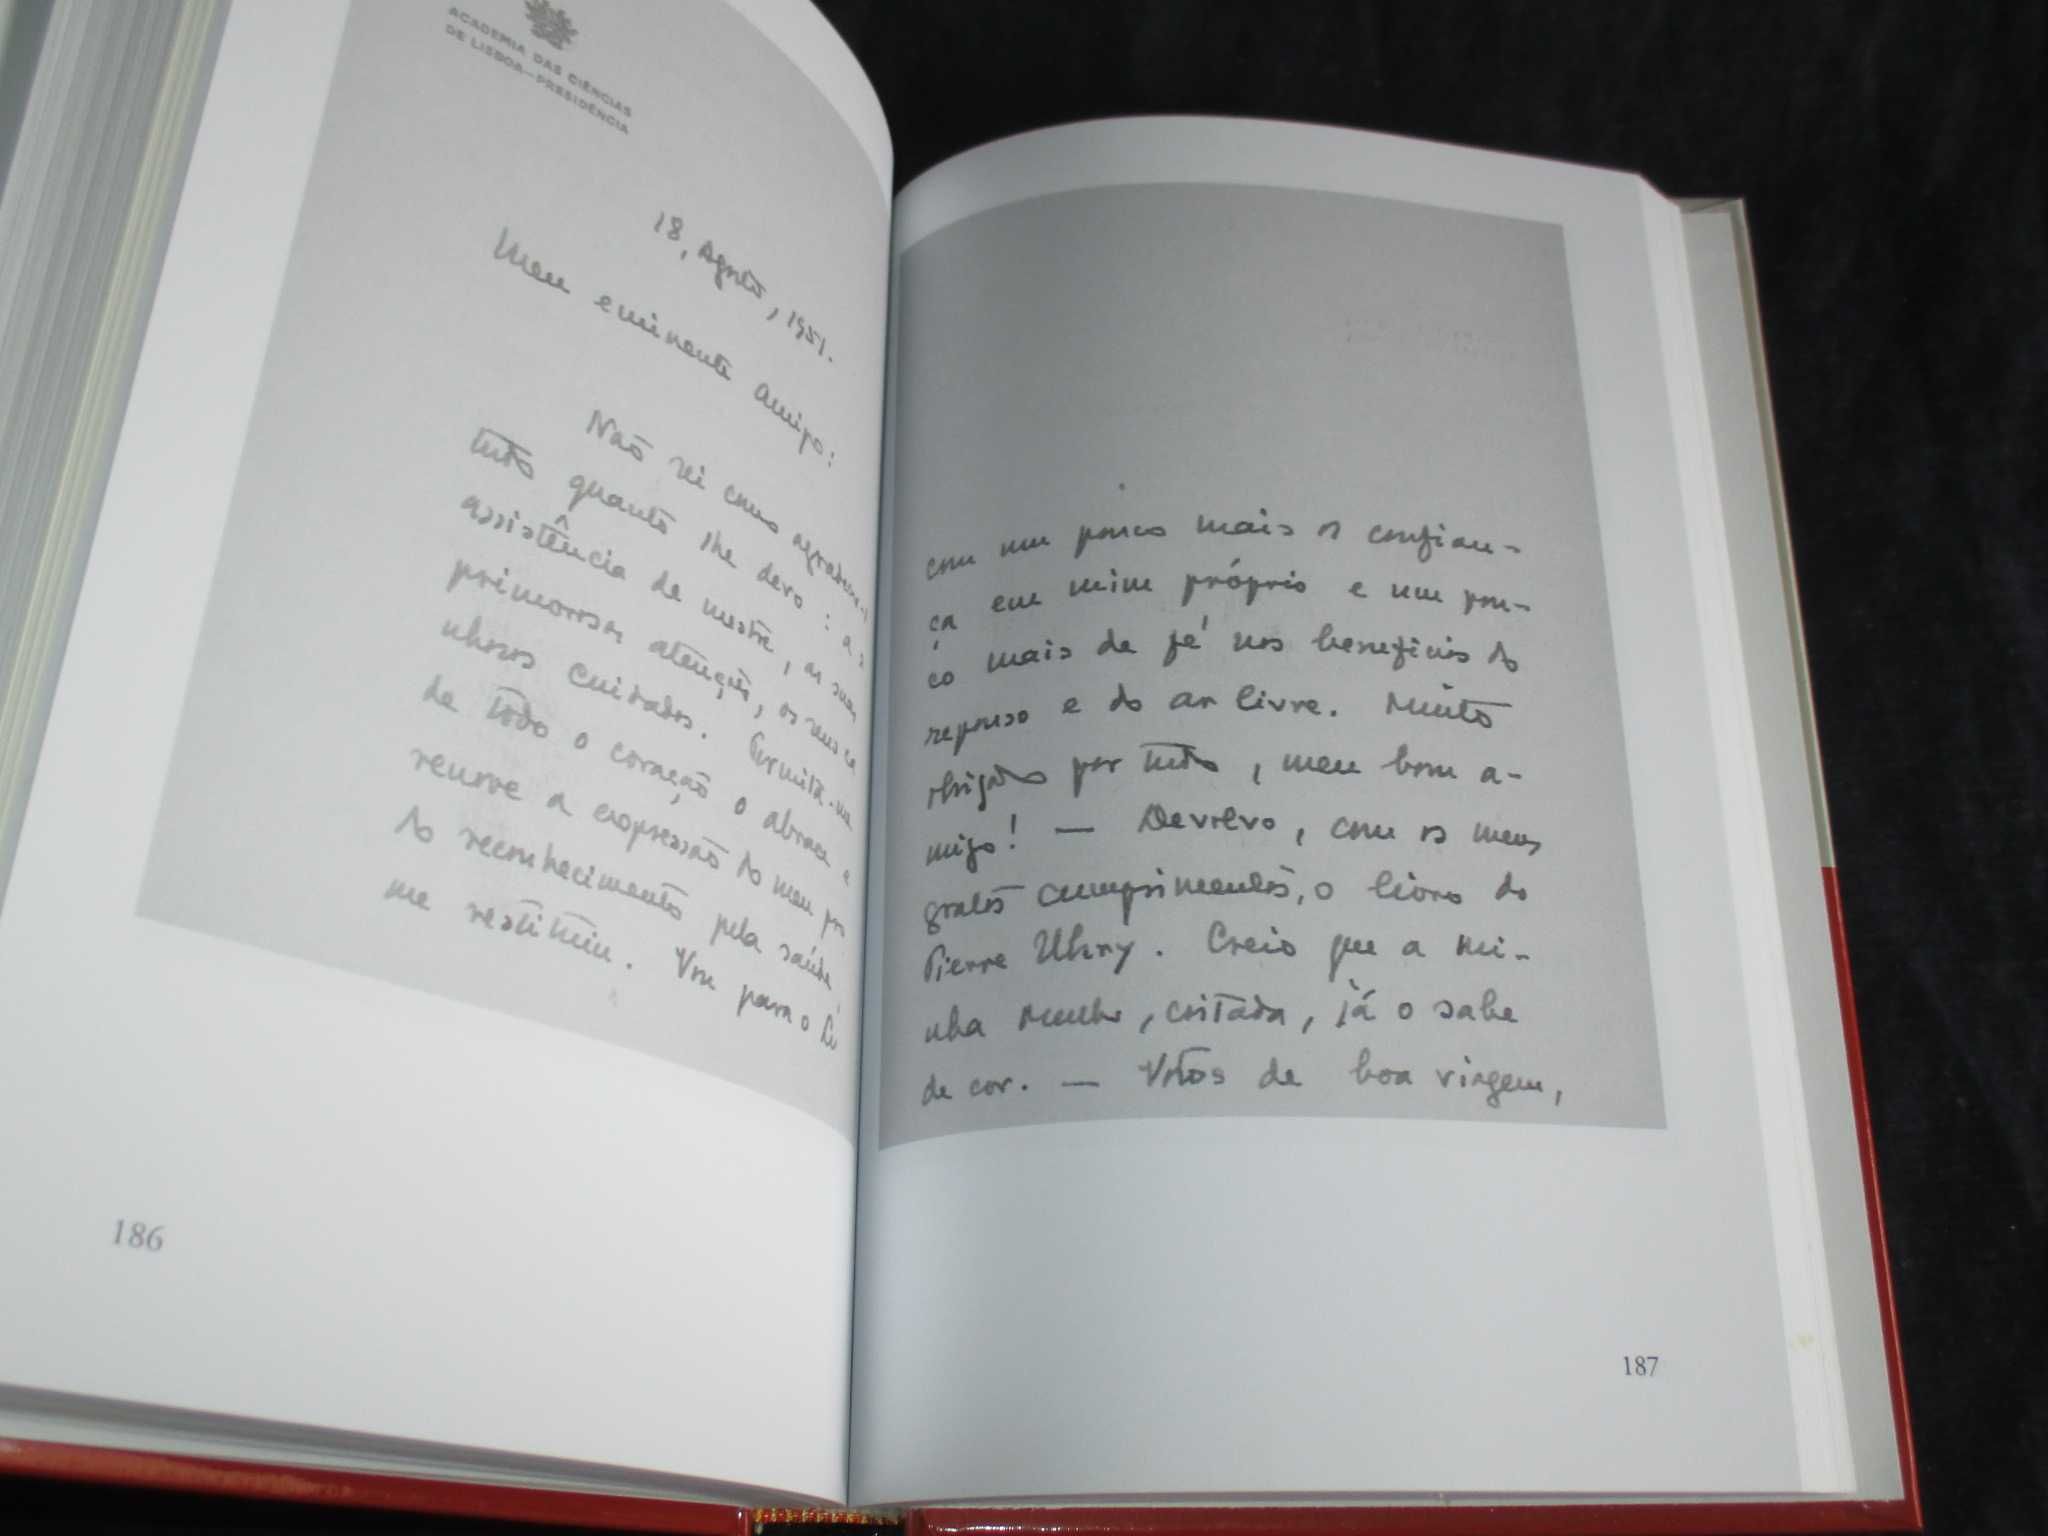 ACADEMIA DAS CIÊNCIAS
DE LISBOA—PRESIDÊNCIA
18, Agosto, 1951.
Meu eminente Amigo:
Não sei como agradecer-l
tudo quanto lhe devo: a s
assistência de mestre, as suas
primorosas atenções, os seus ca
nhosos cuidados. Permita-me
de todo o coração o abrace e
renove a expressão do meu pro
do reconhecimento pela saúde
me restituiu. Vou para o Lu
186
com um pouco mais de confian-
ça em mim próprio e um pou-
co mais de fé nos benefícios do
repouso e do ar livre. Muito
obrigado por tudo, meu bom a-
migo! — Devolvo, com os meus
gratos cumprimentos, o livro do
Pierre Uhry. Creio que a mi-
nha Mulher, coitada, já o sabe
de cor. — Votos de boa viagem,
187